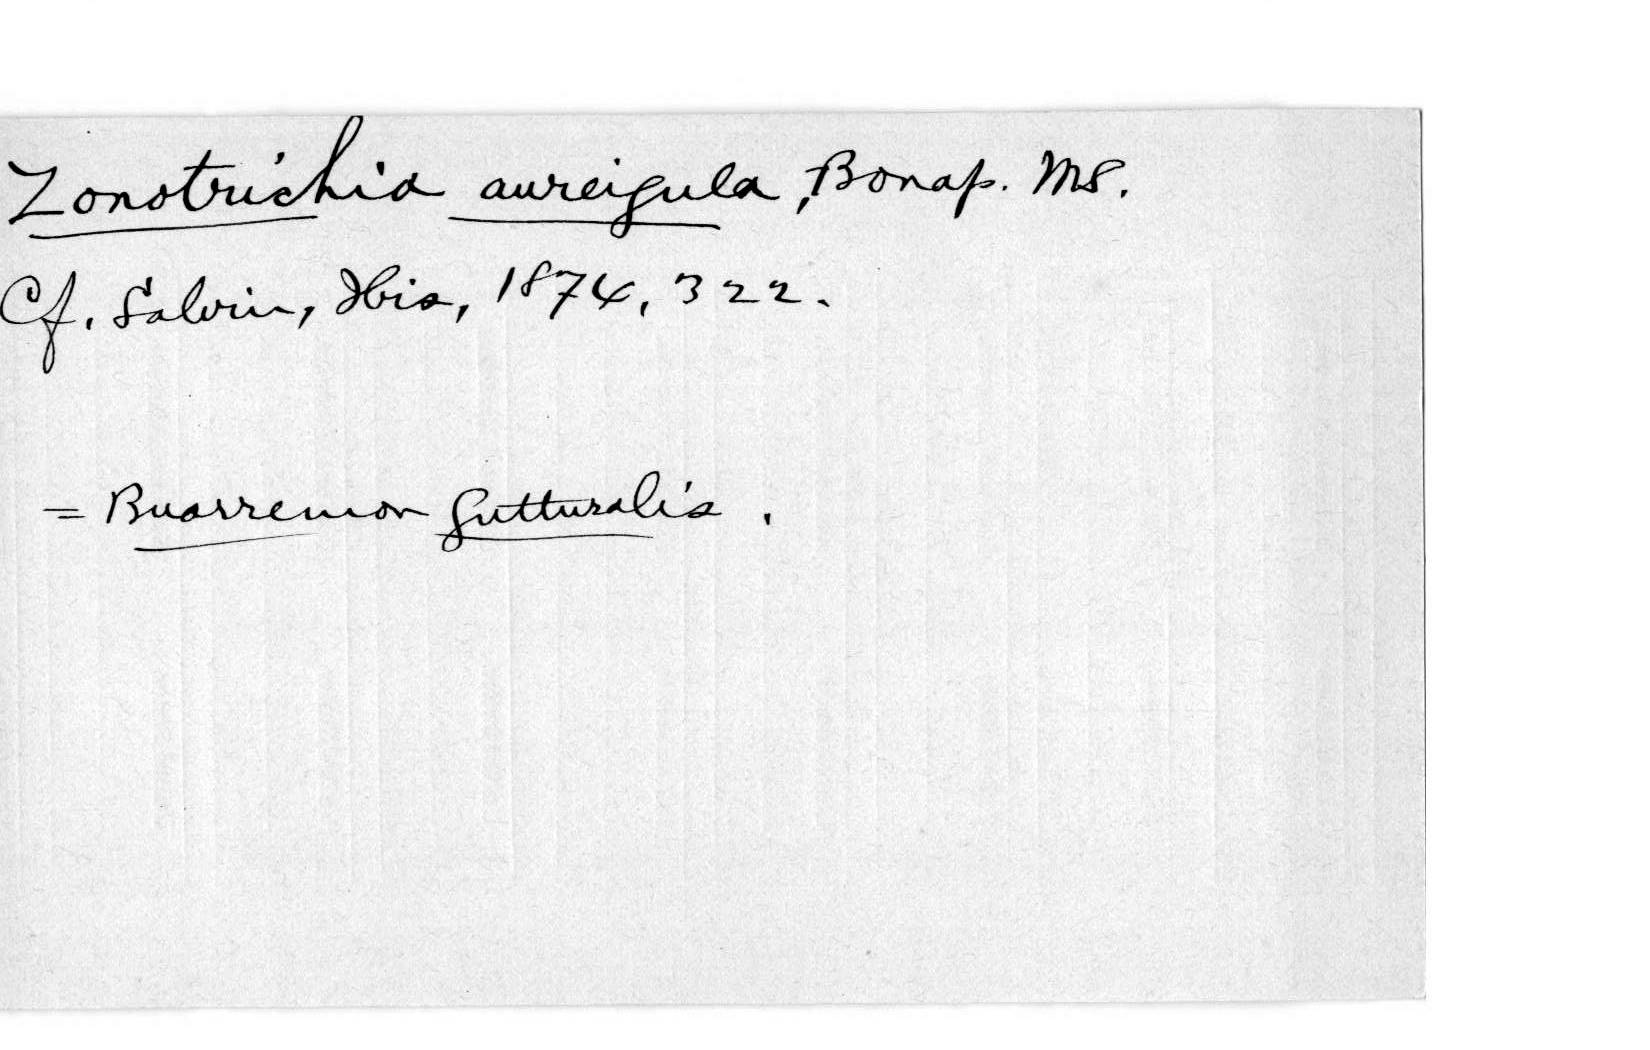 Zonotrichia aureigula, Bonap. MS.
Cf. Salvin, Ibis, 1874, 322.
= Buarremon gutturalis.